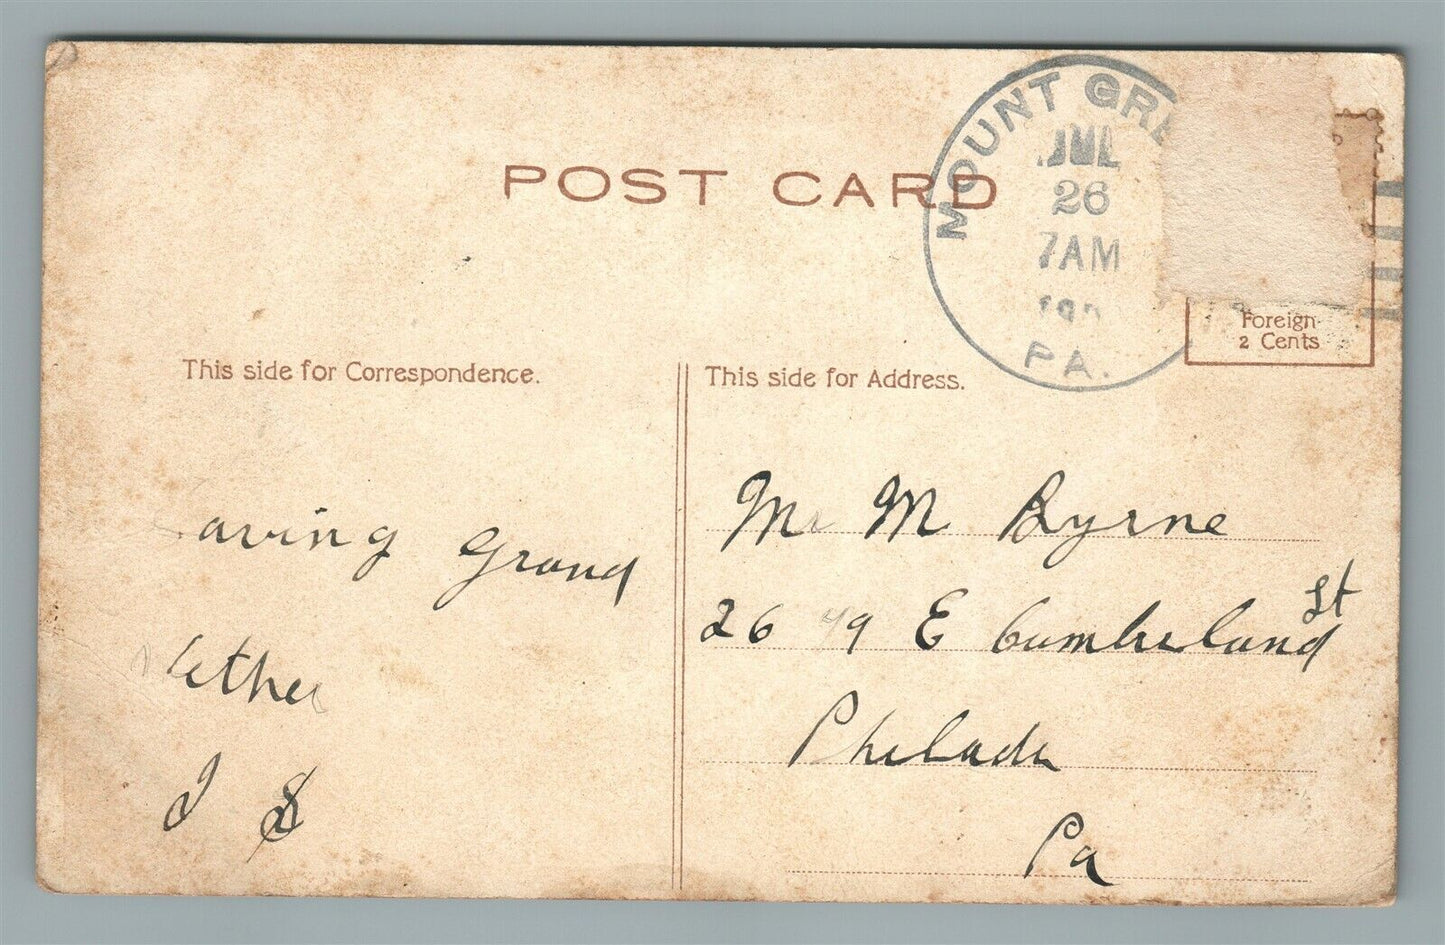 POST CARD
MOUNT GRE
JUL
26
7AM
190
PA.
Foreign
2 Cents
This side for Correspondence.
This side for Address.
aving grand
J S
Mr M Byrne
2679 E Cumberland St
Philada
Pa